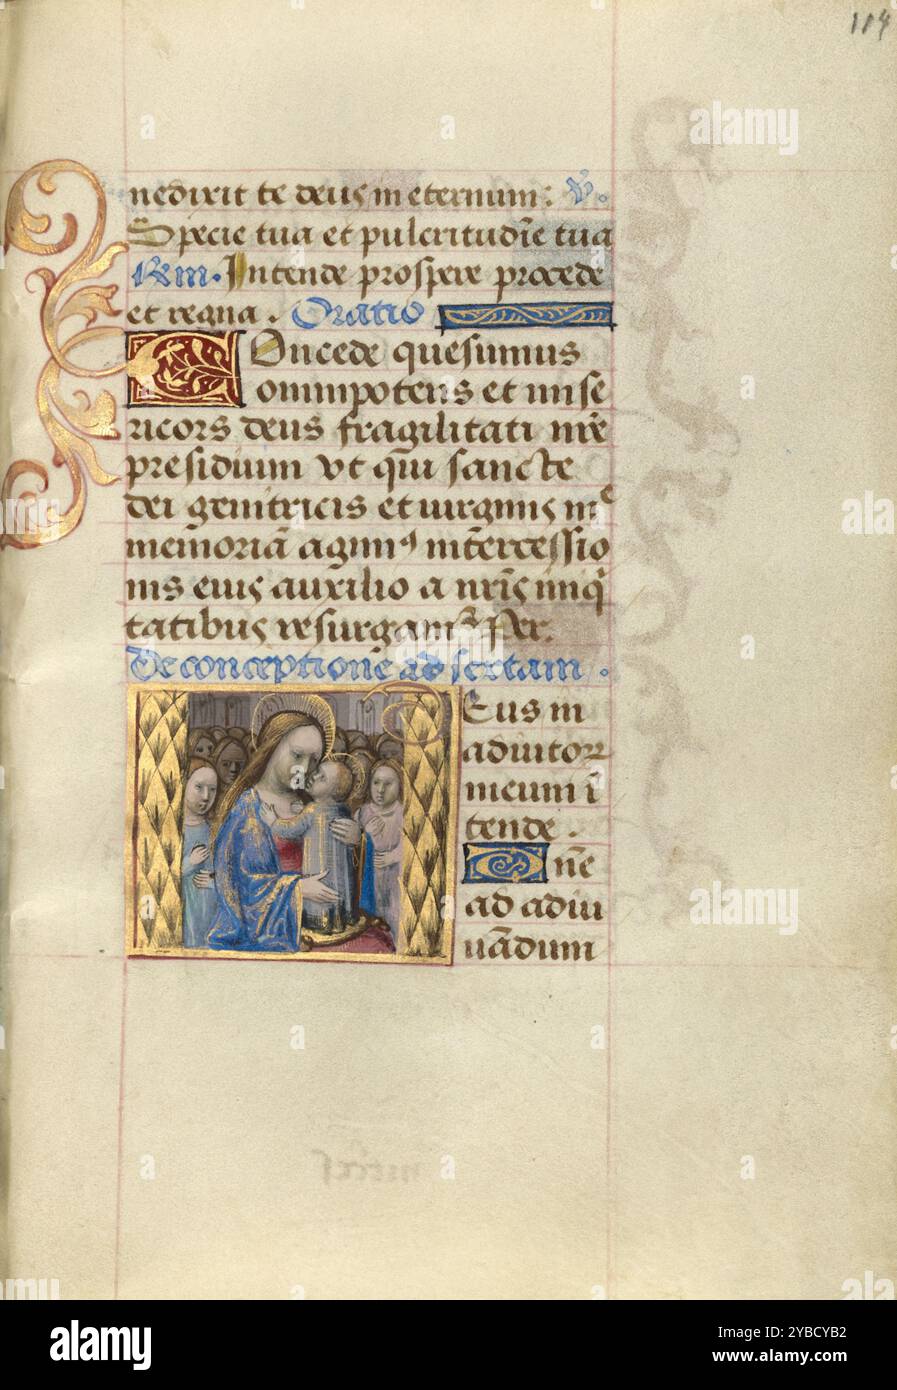 114
nedixit te deus in eternum. ℣.
Specie tua et pulcritudīe tua
Rm. Intende prospere procede
et regna. Oratio
Concede quesumus
omnipotens et mise
ricors deus fragilitati nr̄e
presidium vt qui sancte
dei genitricis et uirginis mᵉ
memoriā agimꝰ intercessio
nis eius auxilio a nr̄is iniqi
tatibus resurgamꝰ Per.
De conceptione ad sextam.
Deus in
adiutoriū
meum ī
tende.
Dn̄e
ad adiu
uādum
alamy
Image ID: 2YBCYB2
www.alamy.com